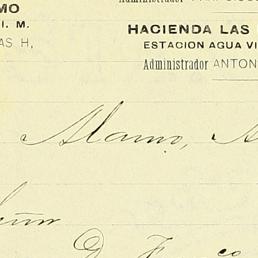 MO
I. M.
AS H,
HACIENDA LAS
ESTACION AGUA VI
Administrador ANTON
Alamo, A
D. F co